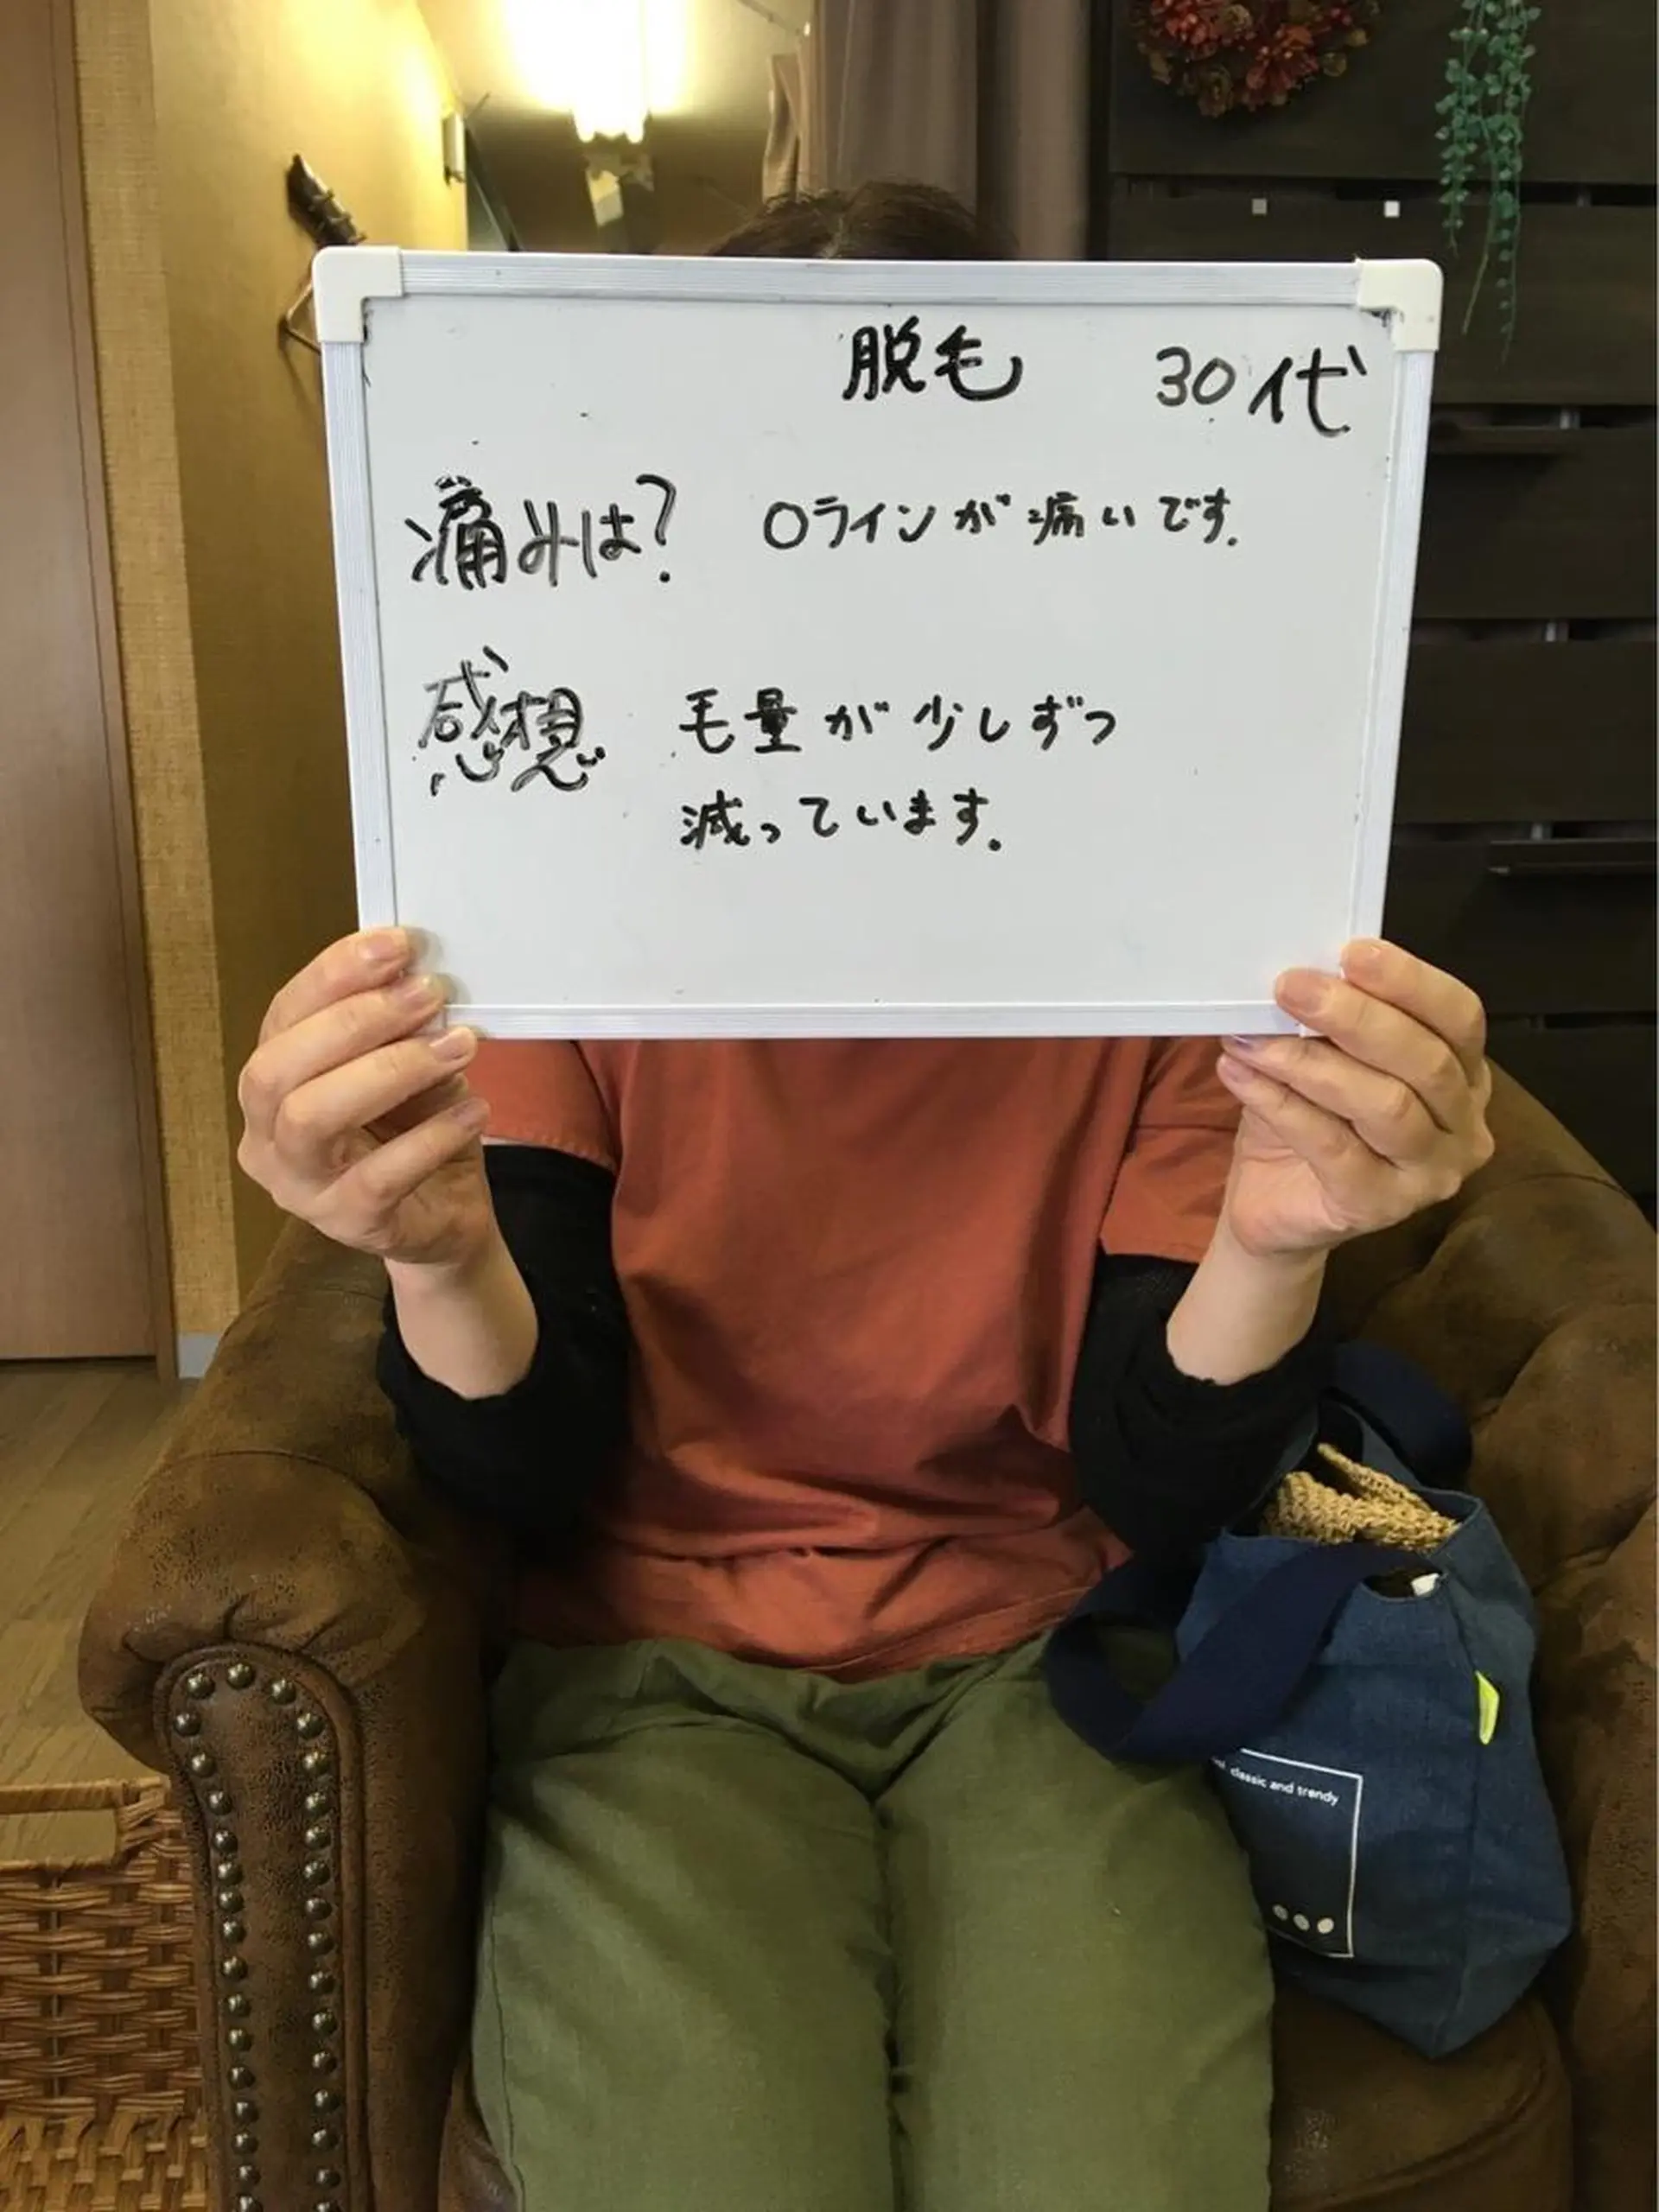 脱毛 30代
痛みは? Oラインが痛いです.
感想 毛量が少しずつ
減っています.
classic and trendy